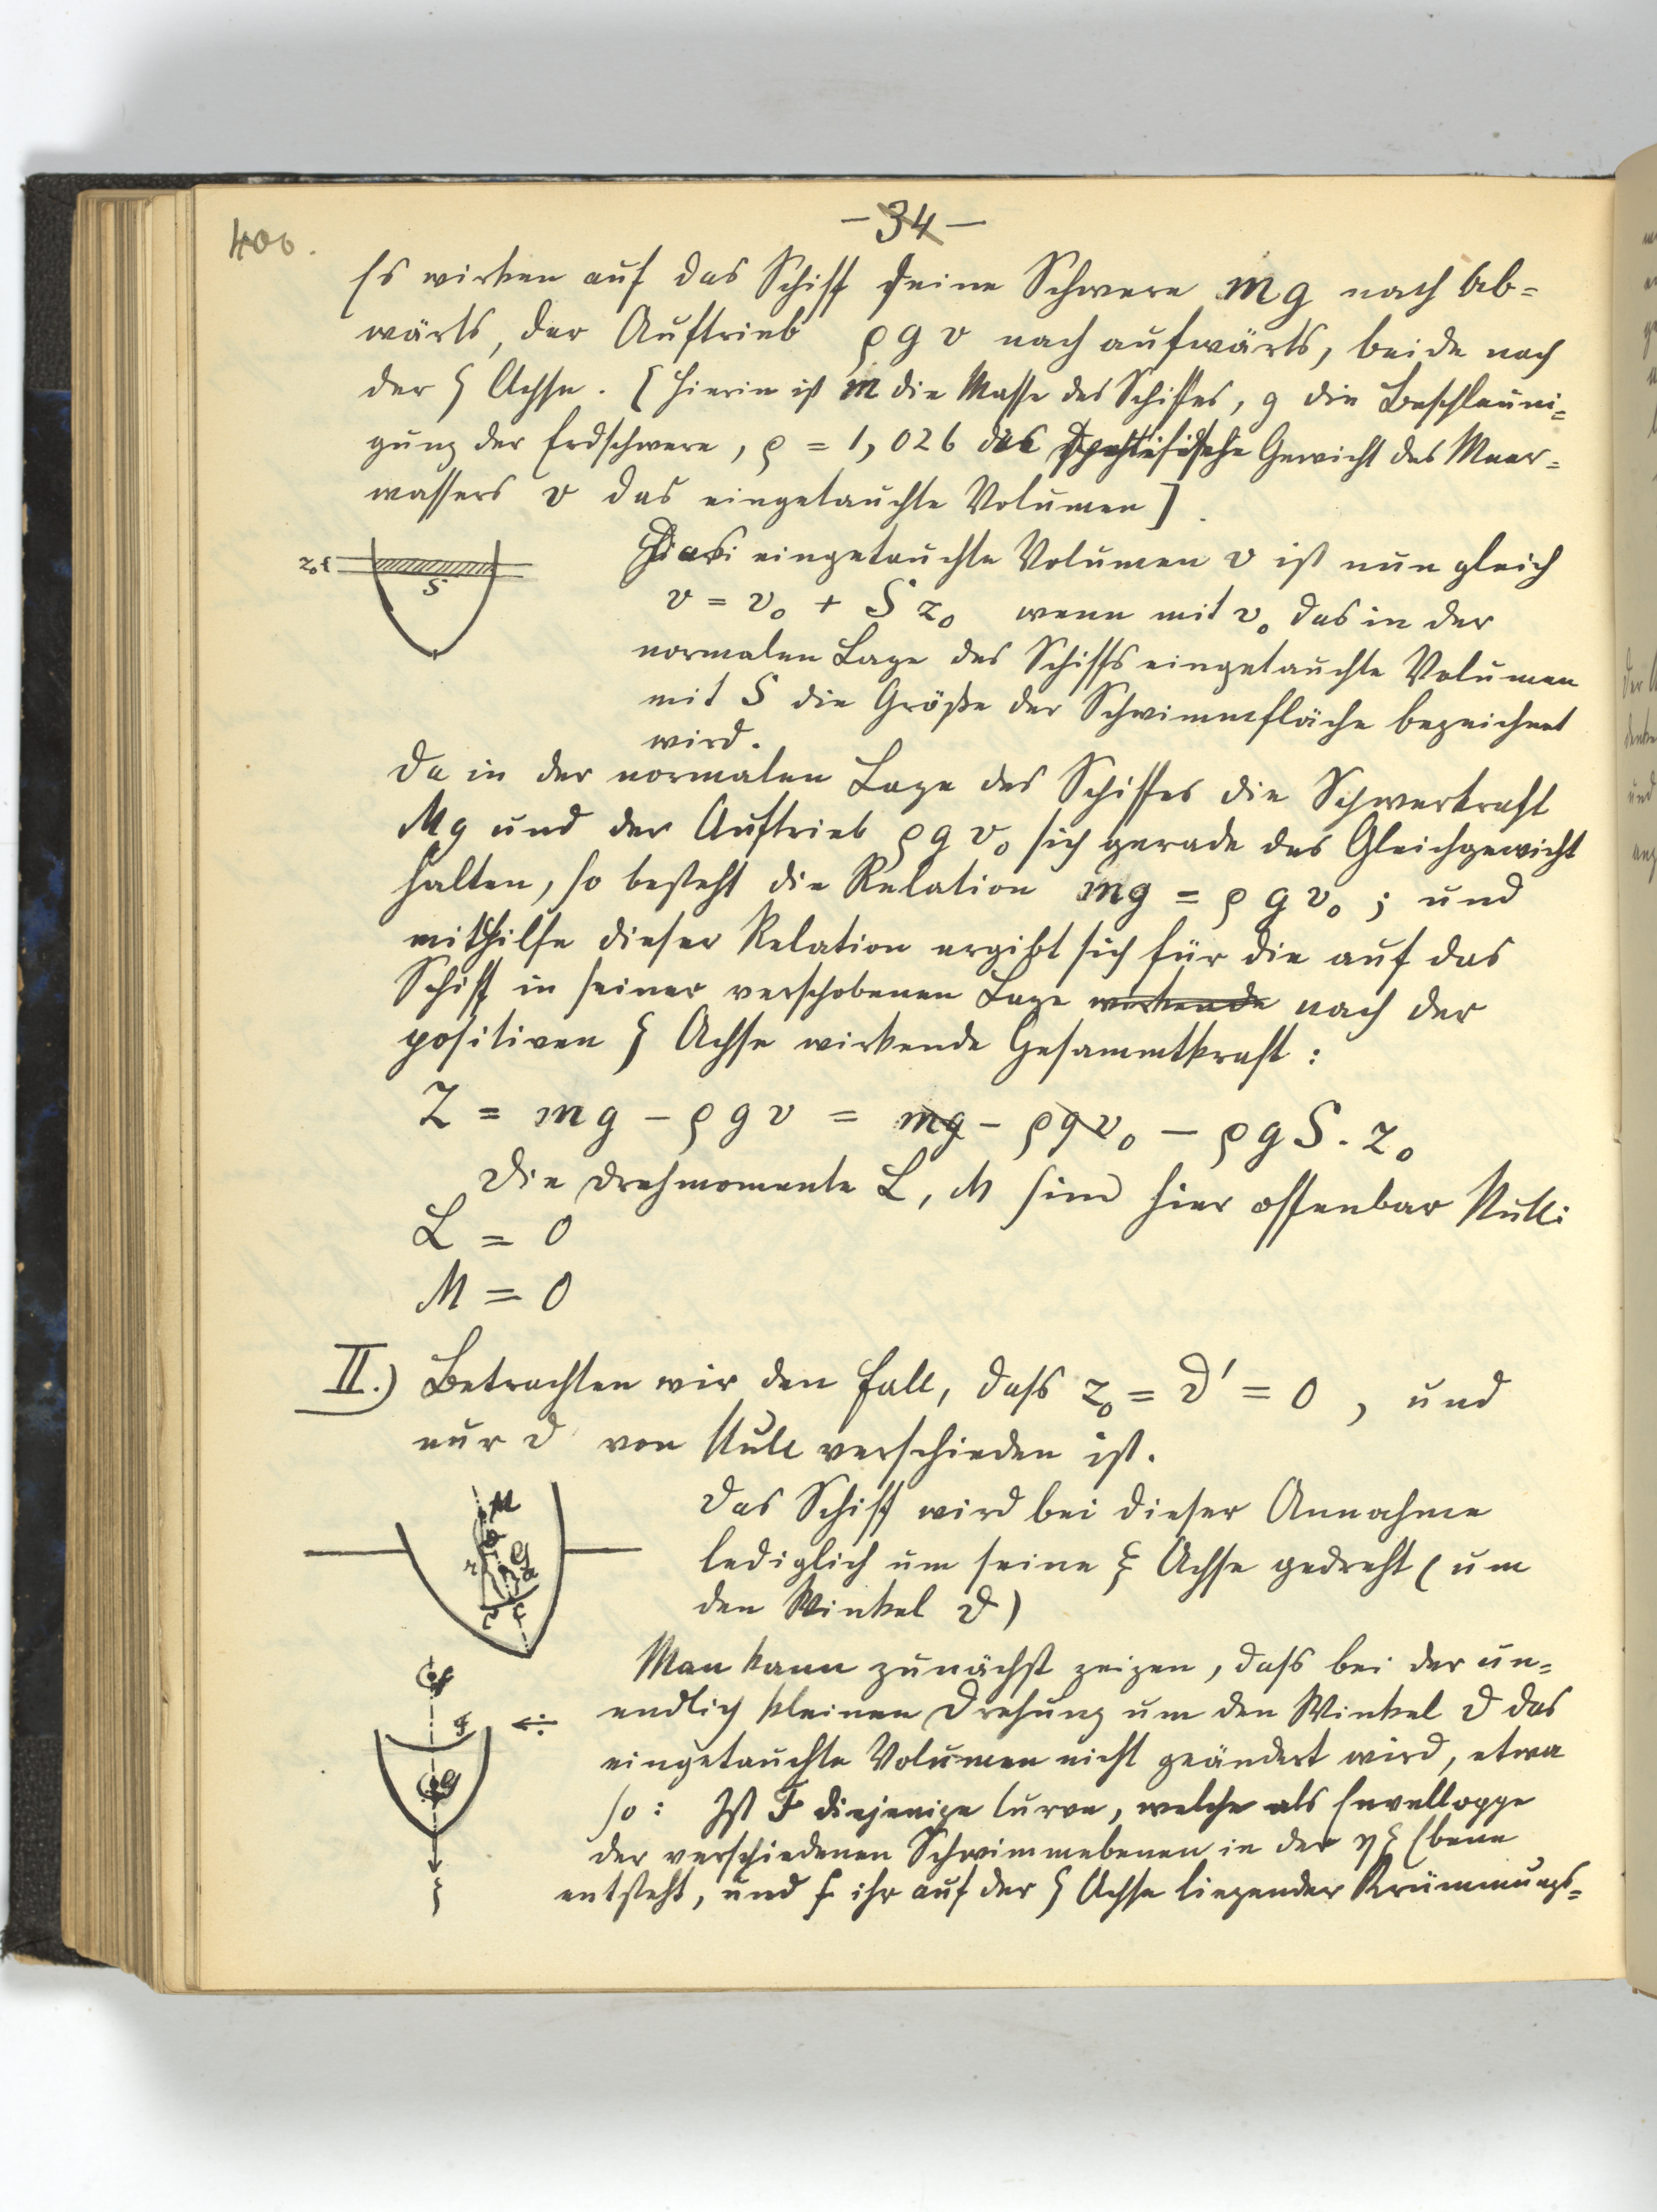 400.
- 34 -
Es wirken auf das Schiff seine Schwere mg nach Ab=
wärts, der Auftrieb ρ g v nach aufwärts, beide nach
der ζ Achse. [ Hierin ist m die Masse des Schiffes, g die Beschleuni=
gung der Erdschwere, ρ = 1,026 das spezifische Gewicht des Meer=
wassers v das eingetauchte Volumen ]
z₀
S
Das eingetauchte Volumen v ist nun gleich
v = v₀ + S z₀ wenn mit v₀ das in der
normalen Lage des Schiffs eingetauchte Volumen
mit S die Größe der Schwimmfläche bezeichnet
wird.
Da in der normalen Lage des Schiffes die Schwerkraft
Mg und der Auftrieb ρ g v₀ sich gerade das Gleichgewicht
halten, so besteht die Relation mg = ρ g v₀ ; und
mithilfe dieser Relation ergibt sich für die auf das
Schiff in seiner verschobenen Lage wirkende nach der
positiven ζ Achse wirkende Gesammtkraft :
Z = mg - ρ g v = mg - ρ g v₀ - ρ g S . z₀
Die Drehmomente L, M sind hier offenbar Null:
L = 0
M = 0
II.) Betrachten wir den Fall, dass z₀ = ϑ' = 0 , und
nur ϑ von Null verschieden ist.
M
F
Das Schiff wird bei dieser Annahme
lediglich um seine ξ Achse gedreht ( um
den Winkel ϑ )
Man kann zunächst zeigen, dass bei der un=
endlich kleinen Drehung um den Winkel ϑ das
eingetauchte Volumen nicht geändert wird, etwa
so : Ist F diejenige Curve, welche als Enveloppe
der verschiedenen Schwimmebenen in der η ζ Ebene
entsteht, und f ihr auf der ζ Achse liegender Krümmungs=
f
F
G
ζ